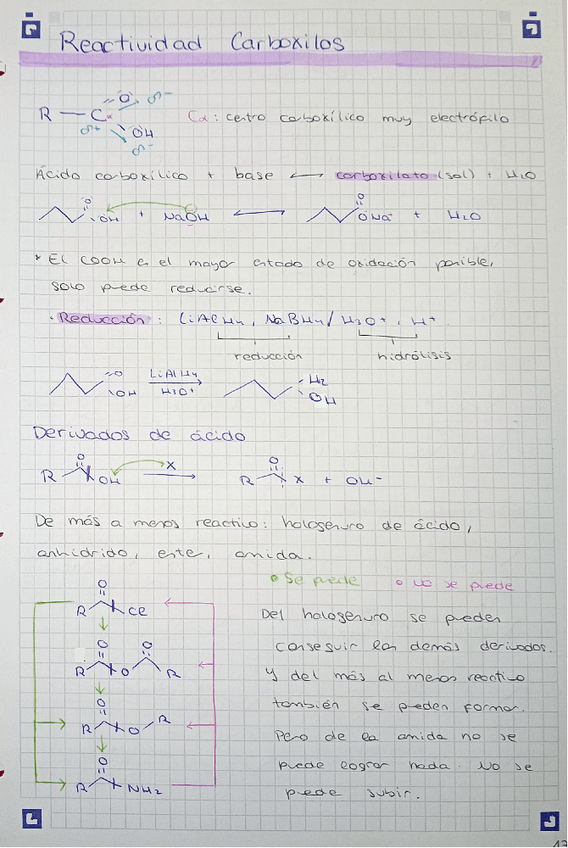 Reactividad Carboxilos
R — C=O δ- OH δ- δ+ Cα: centro carboxílico muy electrófilo
Ácido carboxílico + base ⟷ carboxilato (sal) + H2O
O OH + NaOH ⟷ O ONa + H2O
* El COOH es el mayor estado de oxidación posible,
solo puede reducirse.
· Reducción: LiAlH4, NaBH4 / H3O+, H+
reducción hidrólisis
O OH LiAlH4 H3O+ H2 OH
Derivados de ácido
R O OH X R O X + OH-
De más a menos reactivo: halogenuro de ácido,
anhídrido, ester, amida.
Se puede No se puede
R O Cl
Del halogenuro se pueden
conseguir los demás derivados.
R O O O R
Y del más al menos reactivo
también se pueden formar.
R O O R
Pero de la amida no se
puede lograr nada. No se
R O NH2
puede subir.